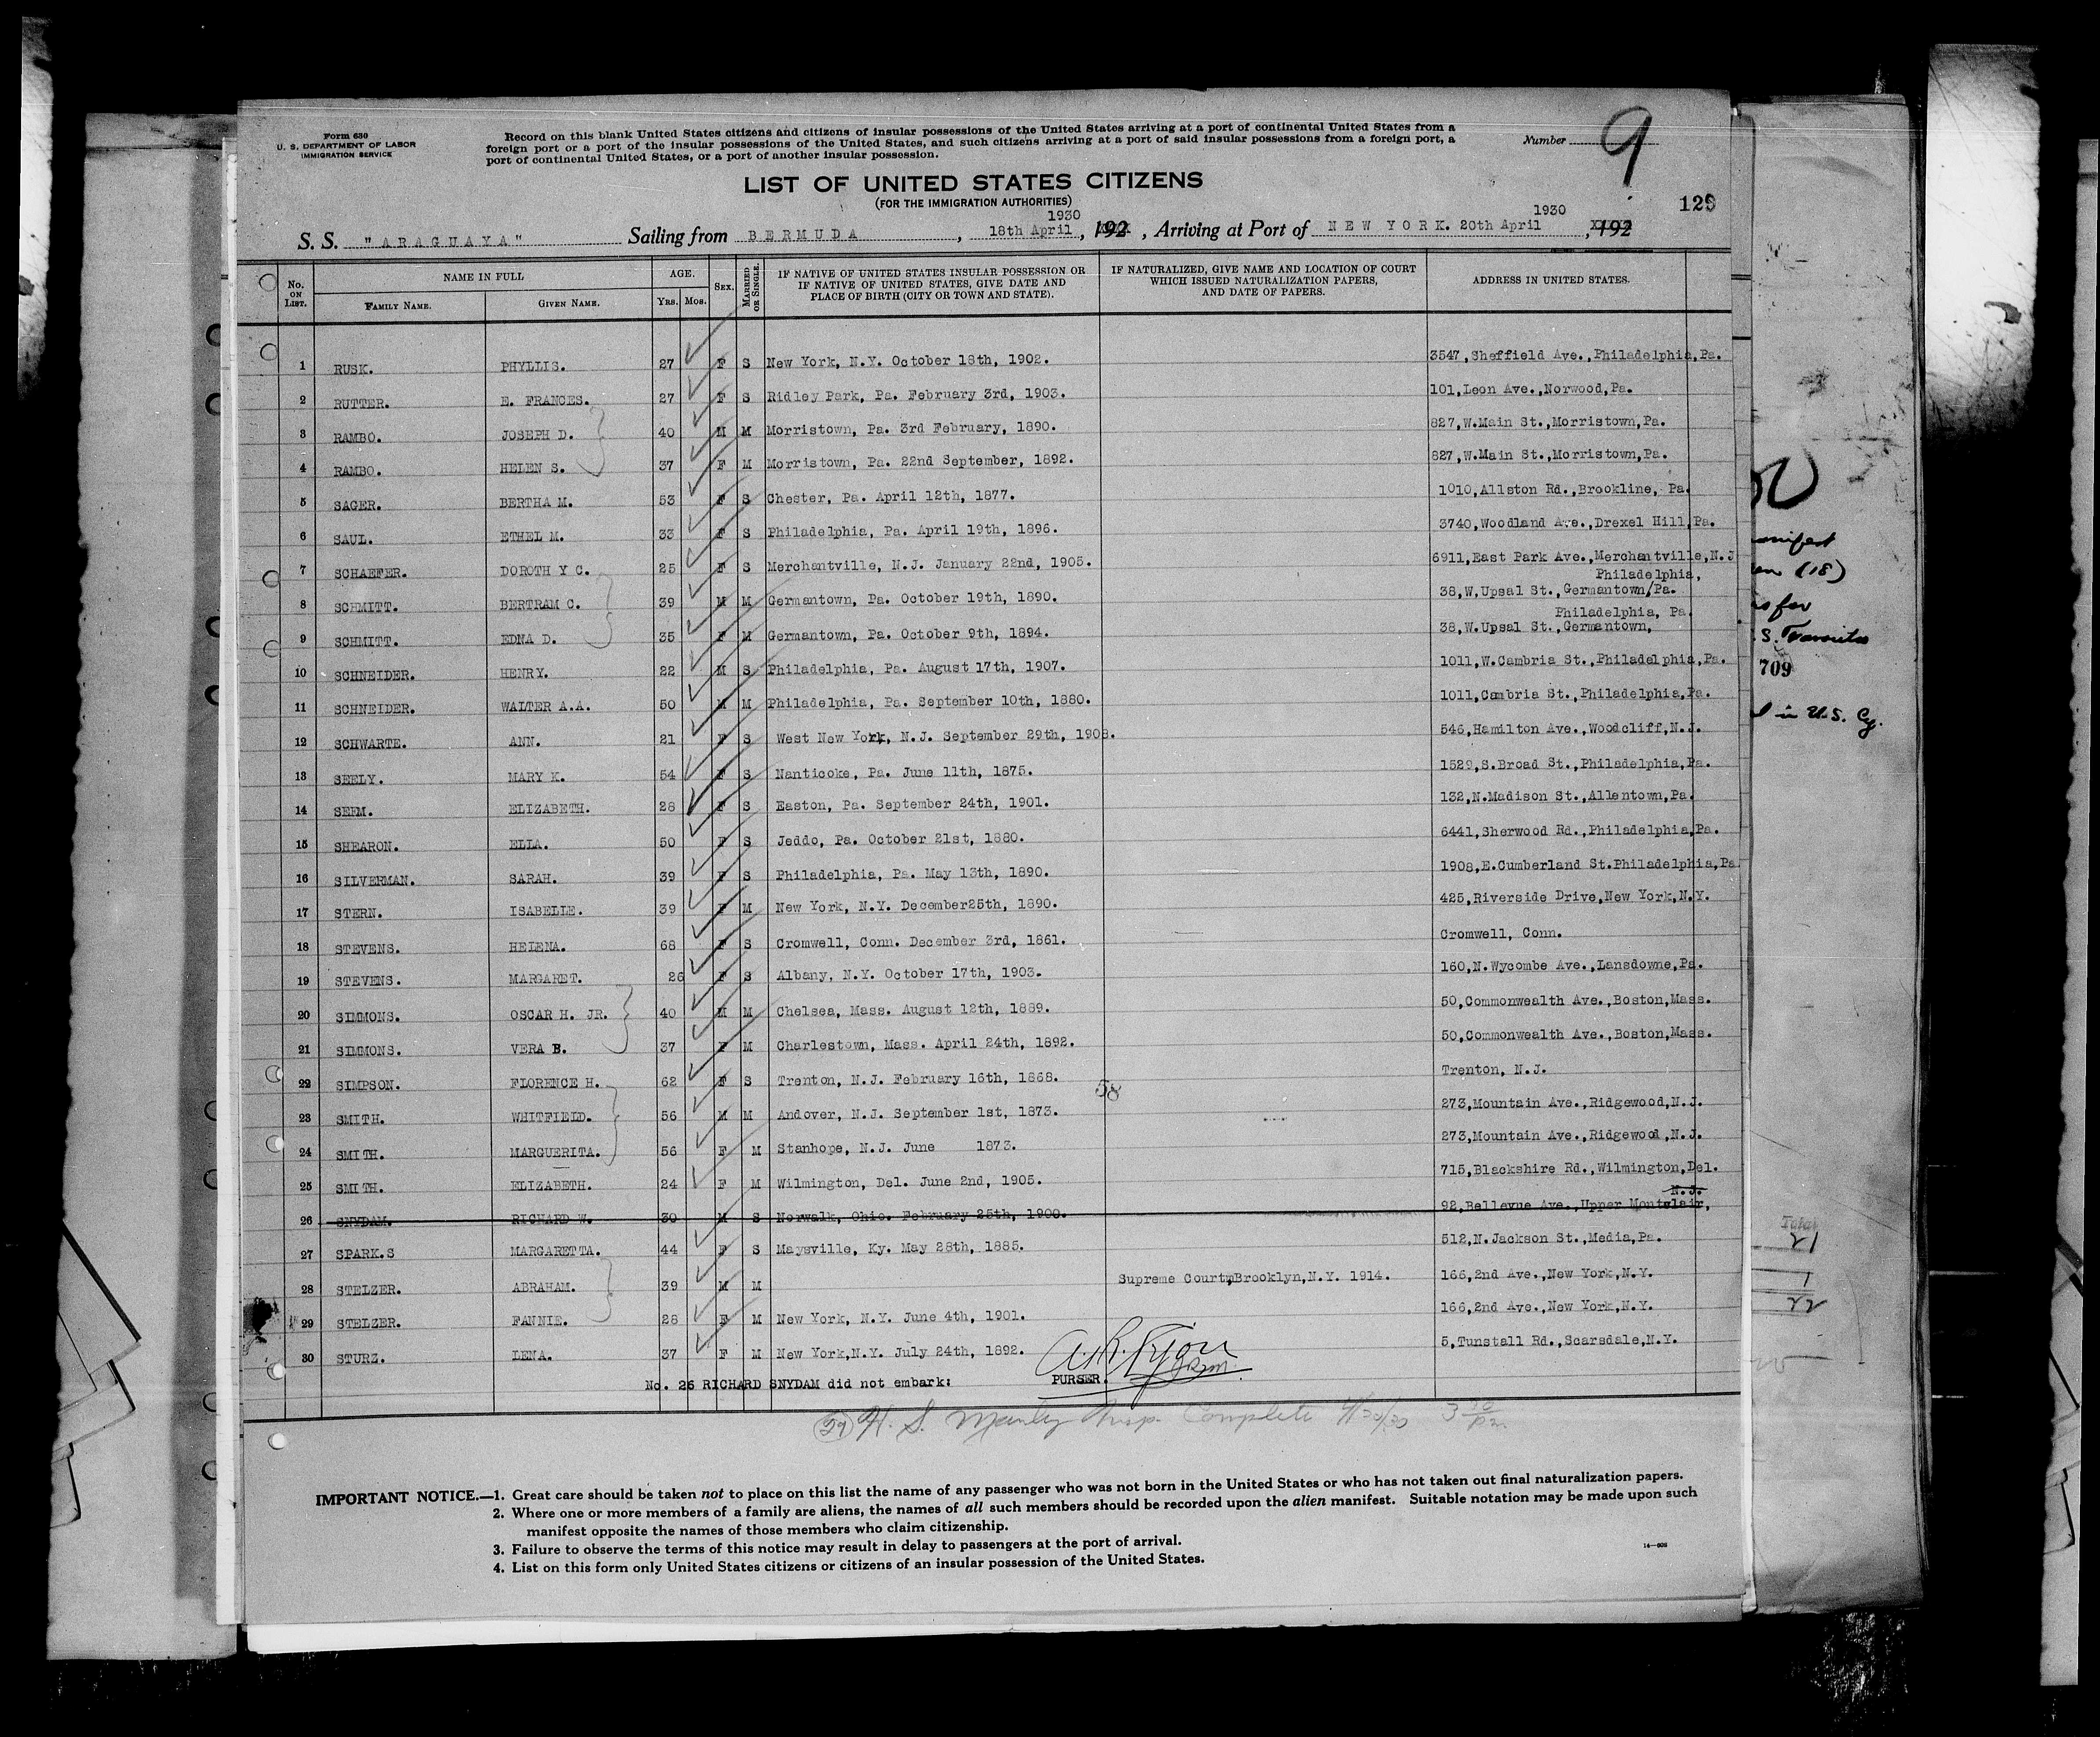 Form 630
U. S. DEPARTMENT OF LABOR
IMMIGRATION SERVICE
Record on this blank United States citizens and citizens of insular possessions of the United States arriving at a port of continental United States from a
foreign port or a port of the insular possessions of the United States, and such citizens arriving at a port of said insular possessions from a foreign port, a
port of continental United States, or a port of another insular possession.
Number 9
LIST OF UNITED STATES CITIZENS
(FOR THE IMMIGRATION AUTHORITIES)
1930 1930
S. S. "ARAGUAYA" Sailing from BERMUDA, 18th April, 192, Arriving at Port of NEW YORK. 20th April, 192
No. ON LIST. NAME IN FULL FAMILY NAME. GIVEN NAME. AGE. YRS. MOS. SEX. MARRIED OR SINGLE. IF NATIVE OF UNITED STATES INSULAR POSSESSION OR IF NATIVE OF UNITED STATES, GIVE DATE AND PLACE OF BIRTH (CITY OR TOWN AND STATE). IF NATURALIZED, GIVE NAME AND LOCATION OF COURT WHICH ISSUED NATURALIZATION PAPERS, AND DATE OF PAPERS. ADDRESS IN UNITED STATES.
1 RUSK. PHYLLIS. 27 F S New York, N.Y. October 18th, 1902. 3547,Sheffield Ave.,Philadelphia,Pa.
2 RUTTER. E. FRANCES. 27 F S Ridley Park, Pa. February 3rd, 1903. 101,Leon Ave.,Norwood,Pa.
3 RAMBO. JOSEPH D. 40 M M Morristown, Pa. 3rd February, 1890. 827,W.Main St.,Morristown,Pa.
4 RAMBO. HELEN S. 37 F M Morristown, Pa. 22nd September, 1892. 827,W.Main St.,Morristown,Pa.
5 SAGER. BERTHA M. 53 F S Chester, Pa. April 12th, 1877. 1010,Allston Rd.,Brookline, Pa.
6 SAUL. ETHEL M. 33 F S Philadelphia, Pa. April 19th, 1896. 3740,Woodland Ave.,Drexel Hill,Pa.
7 SCHAEFER. DOROTHY C. 25 F S Merchantville, N.J. January 22nd, 1905. 6911,East Park Ave.,Merchantville,N.J
Philadelphia,
8 SCHMITT. BERTRAM C. 39 M M Germantown, Pa. October 19th, 1890. 38,W.Upsal St.,Germantown/Pa.
Philadelphia, Pa.
9 SCHMITT. EDNA D. 35 F M Germantown, Pa. October 9th, 1894. 38,W.Upsal St.,Germantown,
10 SCHNEIDER. HENRY. 22 M S Philadelphia, Pa. August 17th, 1907. 1011,W.Cambria St.,Philadelphia,Pa.
11 SCHNEIDER. WALTER A.A. 50 M M Philadelphia, Pa. September 10th, 1880. 1011,Cambria St.,Philadelphia,Pa.
12 SCHWARTE. ANN. 21 F S West New York, N.J. September 29th, 1908. 546,Hamilton Ave.,Woodcliff,N.J.
13 SEELY. MARY K. 54 F S Nanticoke, Pa. June 11th, 1875. 1529,S.Broad St.,Philadelphia,Pa.
14 SEEM. ELIZABETH. 28 F S Easton, Pa. September 24th, 1901. 132,N.Madison St.,Allentown,Pa.
15 SHEARON. ELLA. 50 F S Jeddo, Pa. October 21st, 1880. 6441,Sherwood Rd.,Philadelphia,Pa.
16 SILVERMAN. SARAH. 39 F S Philadelphia, Pa. May 13th, 1890. 1908,E.Cumberland St.Philadelphia,Pa.
17 STERN. ISABELLE. 39 F M New York, N.Y. December25th, 1890. 425,Riverside Drive,New York,N.Y.
18 STEVENS. HELENA. 68 F S Cromwell, Conn. December 3rd, 1861. Cromwell, Conn.
19 STEVENS. MARGARET. 26 F S Albany, N.Y. October 17th, 1903. 160,N.Wycombe Ave.,Lansdowne,Pa.
20 SIMMONS. OSCAR H. JR. 40 M M Chelsea, Mass. August 12th, 1889. 50,Commonwealth Ave.,Boston,Mass.
21 SIMMONS. VERA B. 37 F M Charlestown, Mass. April 24th, 1892. 50,Commonwealth Ave.,Boston,Mass.
22 SIMPSON. FLORENCE H. 62 F S Trenton, N.J. February 16th, 1868. Trenton, N.J.
58
23 SMITH. WHITFIELD. 56 M M Andover, N.J. September 1st, 1873. 273,Mountain Ave.,Ridgewood,N.J.
24 SMITH. MARGUERITA. 56 F M Stanhope, N.J. June 1873. 273,Mountain Ave.,Ridgewood,N.J.
25 SMITH. ELIZABETH. 24 F M Wilmington, Del. June 2nd, 1905. 715,Blackshire Rd.,Wilmington,Del.
N.J.
26 SNYDAM. RICHARD W. 30 M S Norwalk, Ohio. February 25th, 1900. 92,Bellevue Ave.,Upper Montclair,
27 SPARK.S MARGARETTA. 44 F S Maysville, Ky. May 28th, 1885. 512,N.Jackson St.,Media,Pa.
28 STELZER. ABRAHAM. 39 M M Supreme Court,Brooklyn,N.Y. 1914. 166,2nd Ave.,New York,N.Y.
29 STELZER. FANNIE. 28 F M New York, N.Y. June 4th, 1901. 166,2nd Ave.,New York,N.Y.
30 STURZ. LENA. 37 F M New York,N.Y. July 24th, 1892. 5,Tunstall Rd.,Scarsdale,N.Y.
No. 26 RICHARD SNYDAM did not embark: PURSER.
(29) H. S. Manley Insp. Complete 4/20/30 3 PM
IMPORTANT NOTICE.—1. Great care should be taken not to place on this list the name of any passenger who was not born in the United States or who has not taken out final naturalization papers.
2. Where one or more members of a family are aliens, the names of all such members should be recorded upon the alien manifest. Suitable notation may be made upon such
manifest opposite the names of those members who claim citizenship.
3. Failure to observe the terms of this notice may result in delay to passengers at the port of arrival.
4. List on this form only United States citizens or citizens of an insular possession of the United States.
709
in U.S. Cy.
Total
21
1
22